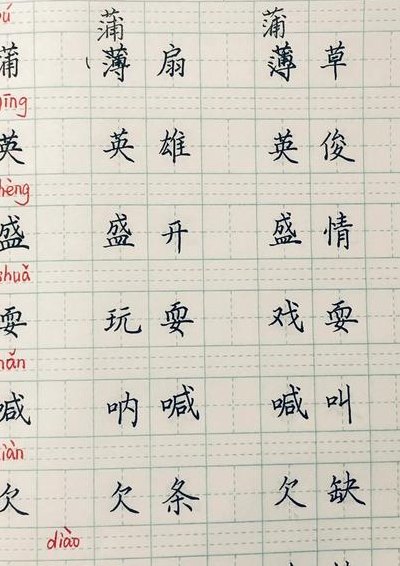 pú 蒲 蒲
蒲 薄扇 薄草
yīng
英 英雄 英俊
shèng
盛 盛开 盛情
shuǎ
耍 玩耍 戏耍
hǎn
喊 呐喊 喊叫
qiàn
欠 欠条 欠缺
diào